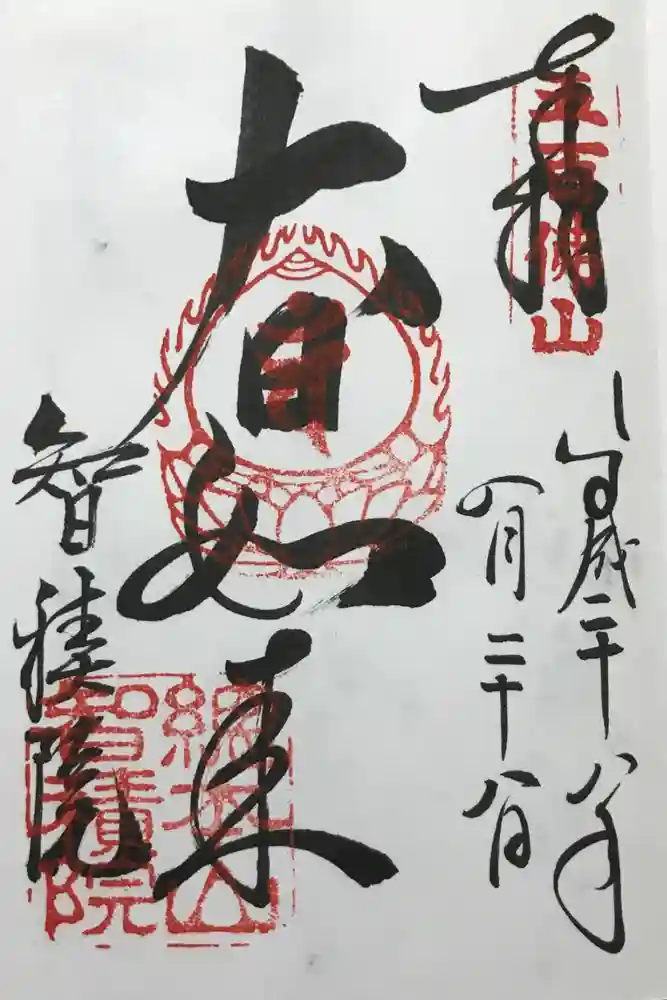 奉拝
五百佛山
平成二十八年
月二十八日
大日如来
智積院
總本山
智積院